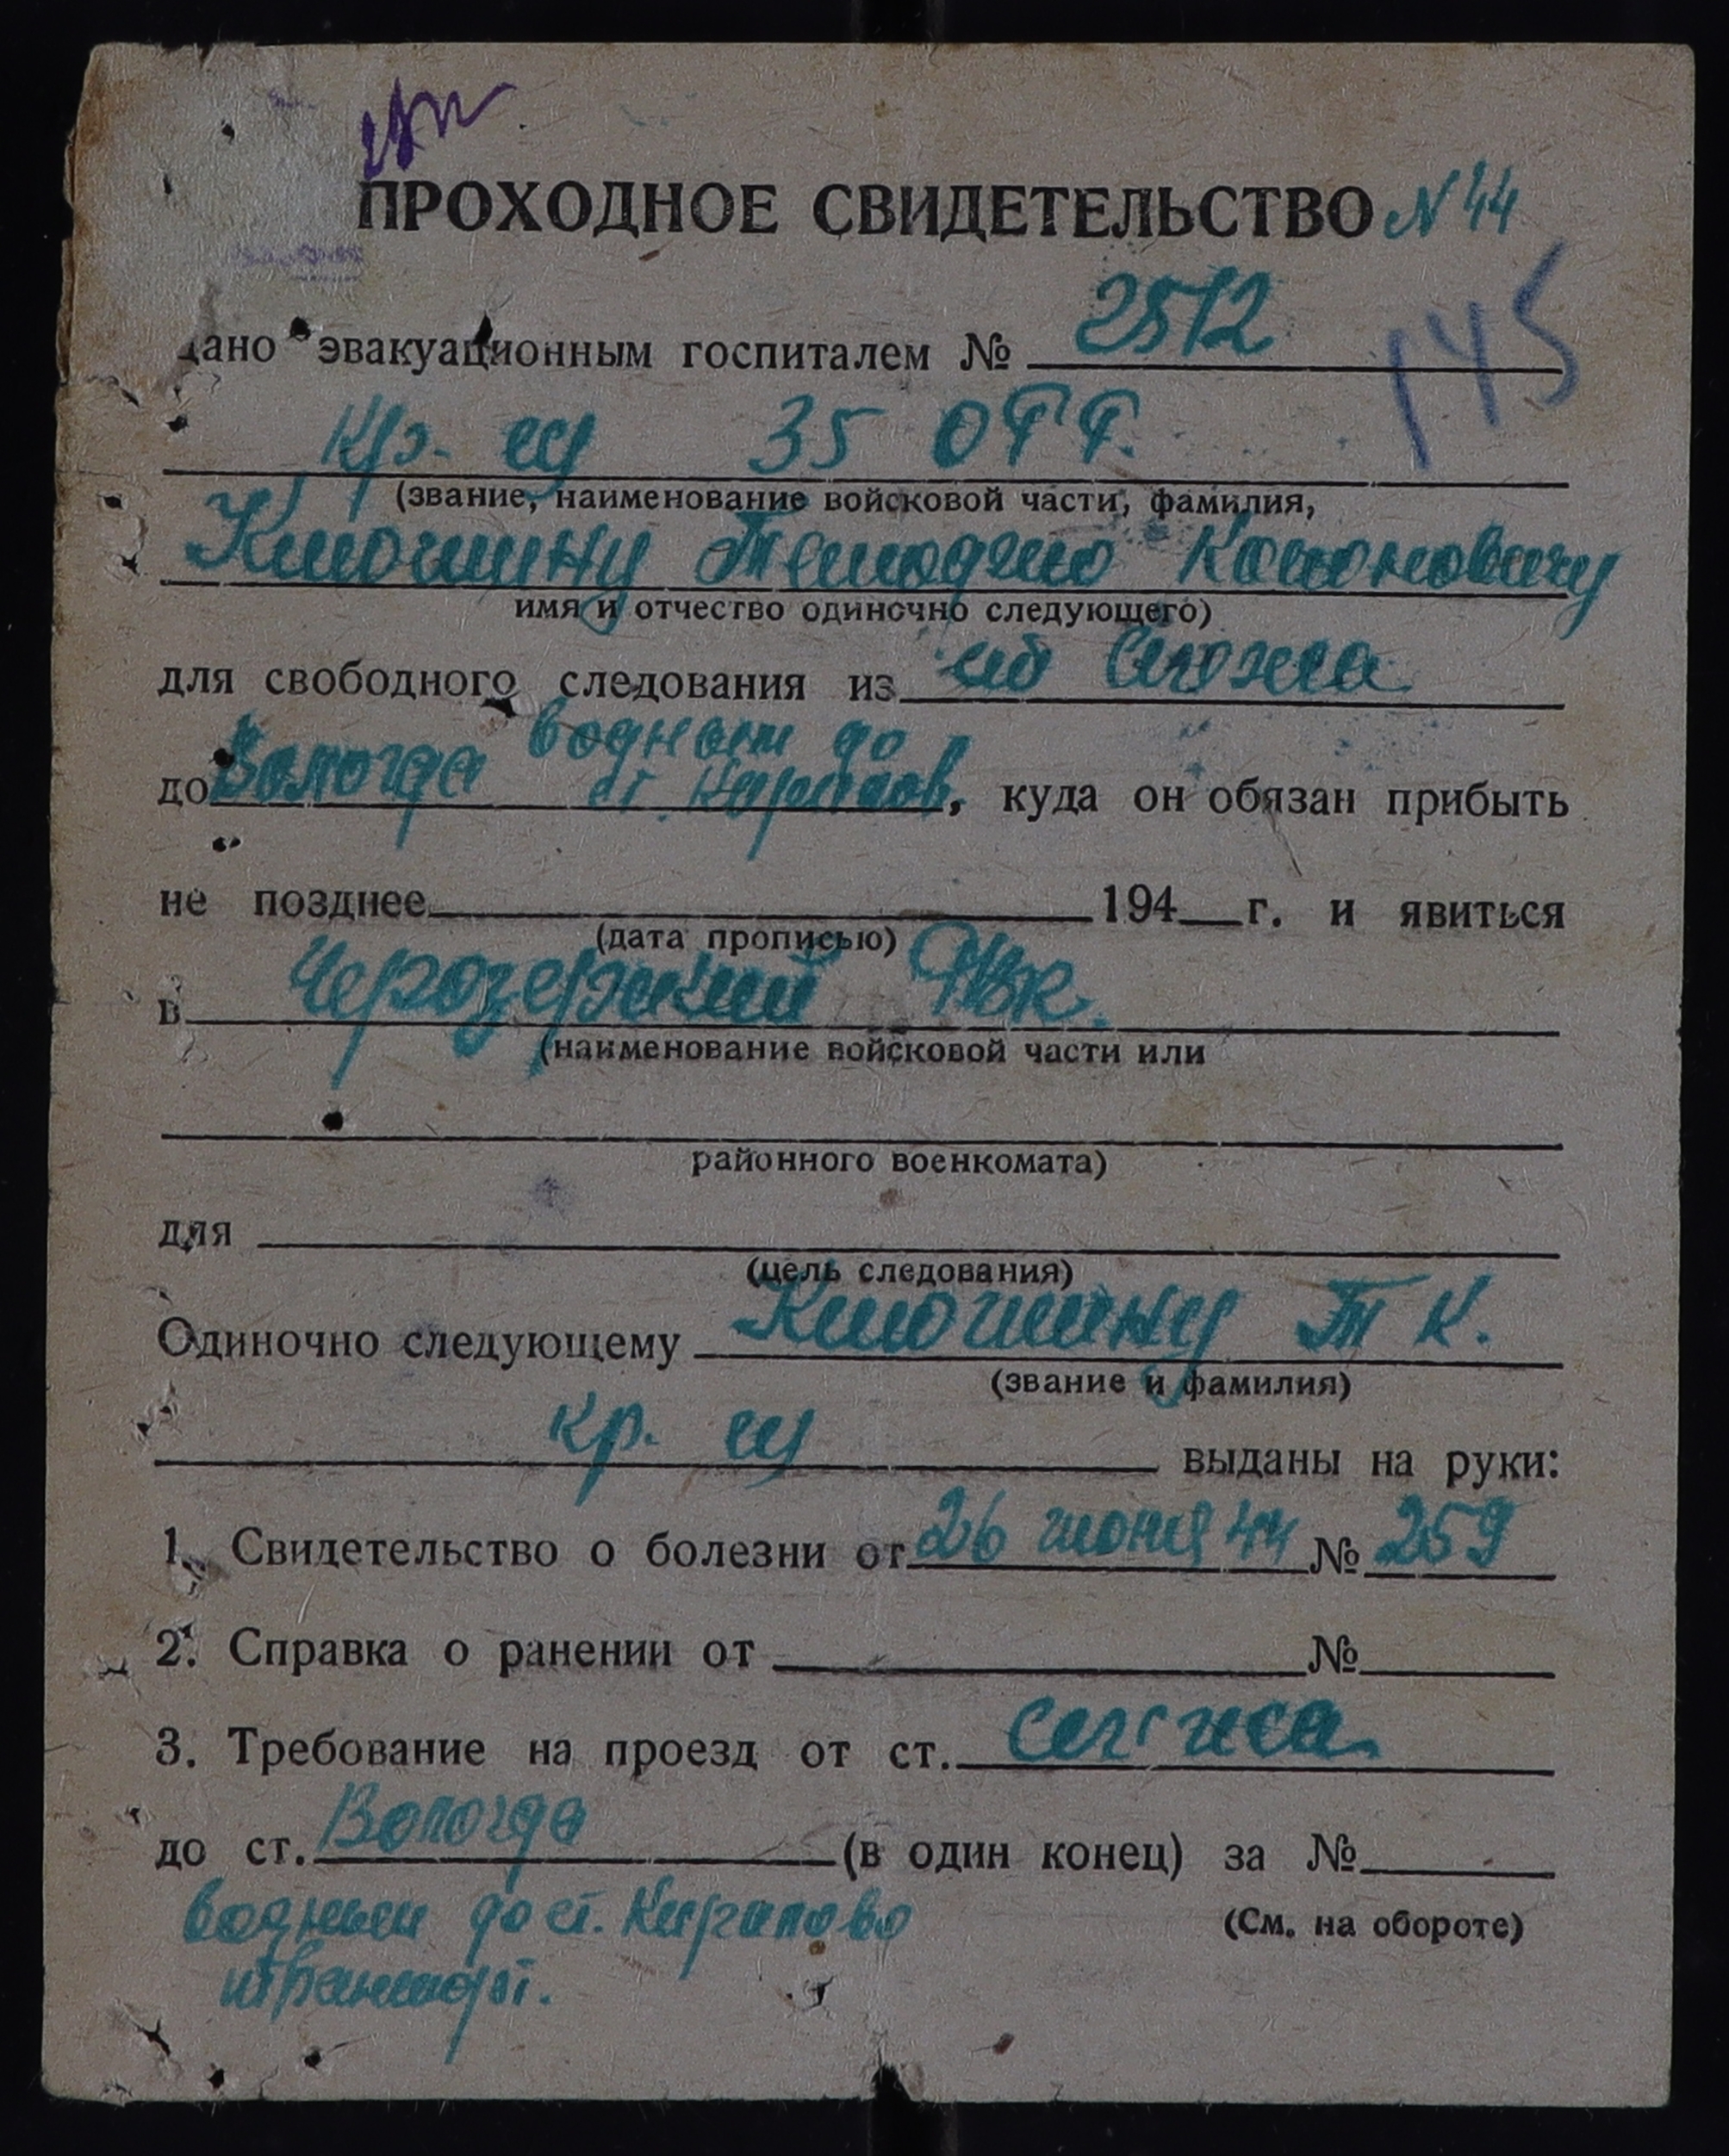 ПРОХОДНОЕ СВИДЕТЕЛЬСТВО N 44
145
дано эвакуационным госпиталем № 2512
Кр-ец 35
(звание, наименование войсковой части, фамилия,
Клюшину Кононовичу
имя и отчество одиночно следующего)
для свободного следования из
водным до
до Вологда ст., куда он обязан прибыть
не позднее 194 г. и явиться
(дата прописью)
в Чарозерский РВК.
(наименование войсковой части или
районного военкомата)
для
(цель следования)
Одиночно следующему Клюшину Т К.
(звание и фамилия)
кр-ец выданы на руки:
1. Свидетельство о болезни от 26 июня 44 № 259
2. Справка о ранении от №
3. Требование на проезд от ст.
до ст. Вологда (в один конец) за №
водным до ст.
(См. на обороте)